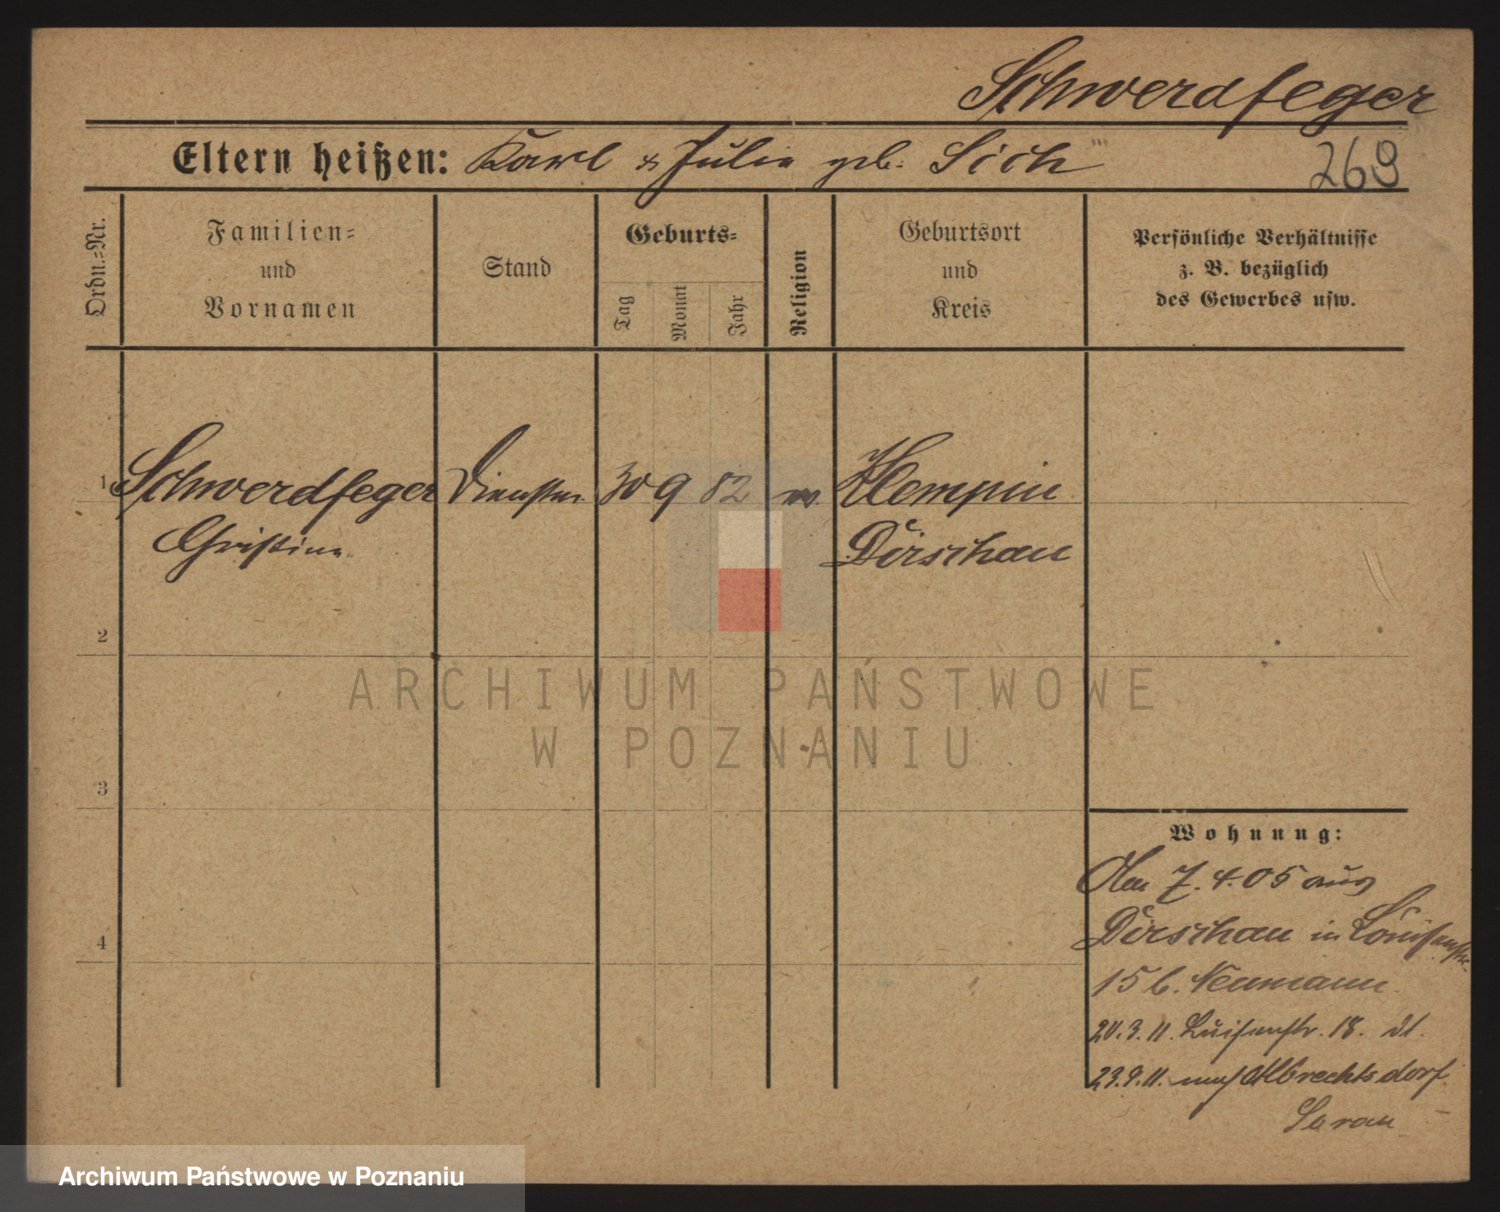 Schwerdfeger
Eltern heißen: Karl & Julie geb. Sich
269
Ordn.=Nr.
Familien=
und
Vornamen
Stand
Geburts=
Tag
Monat
Jahr
Religion
Geburtsort
und
Kreis
Persönliche Verhältnisse
z. B. bezüglich
des Gewerbes usw.
1 Schwerdfeger 30 9 82 Klempin
Christine Dirschau
2
3
4
Wohnung:
Am 7.4.05 aus
Dirschau in Louisenstr.
15 b. Neumann.
20.3.11. Luisenstr. 18.
23.9.11. nach Albrechtsdorf
Sorau
ARCHIWUM PAŃSTWOWE
W POZNANIU
Archiwum Państwowe w Poznaniu